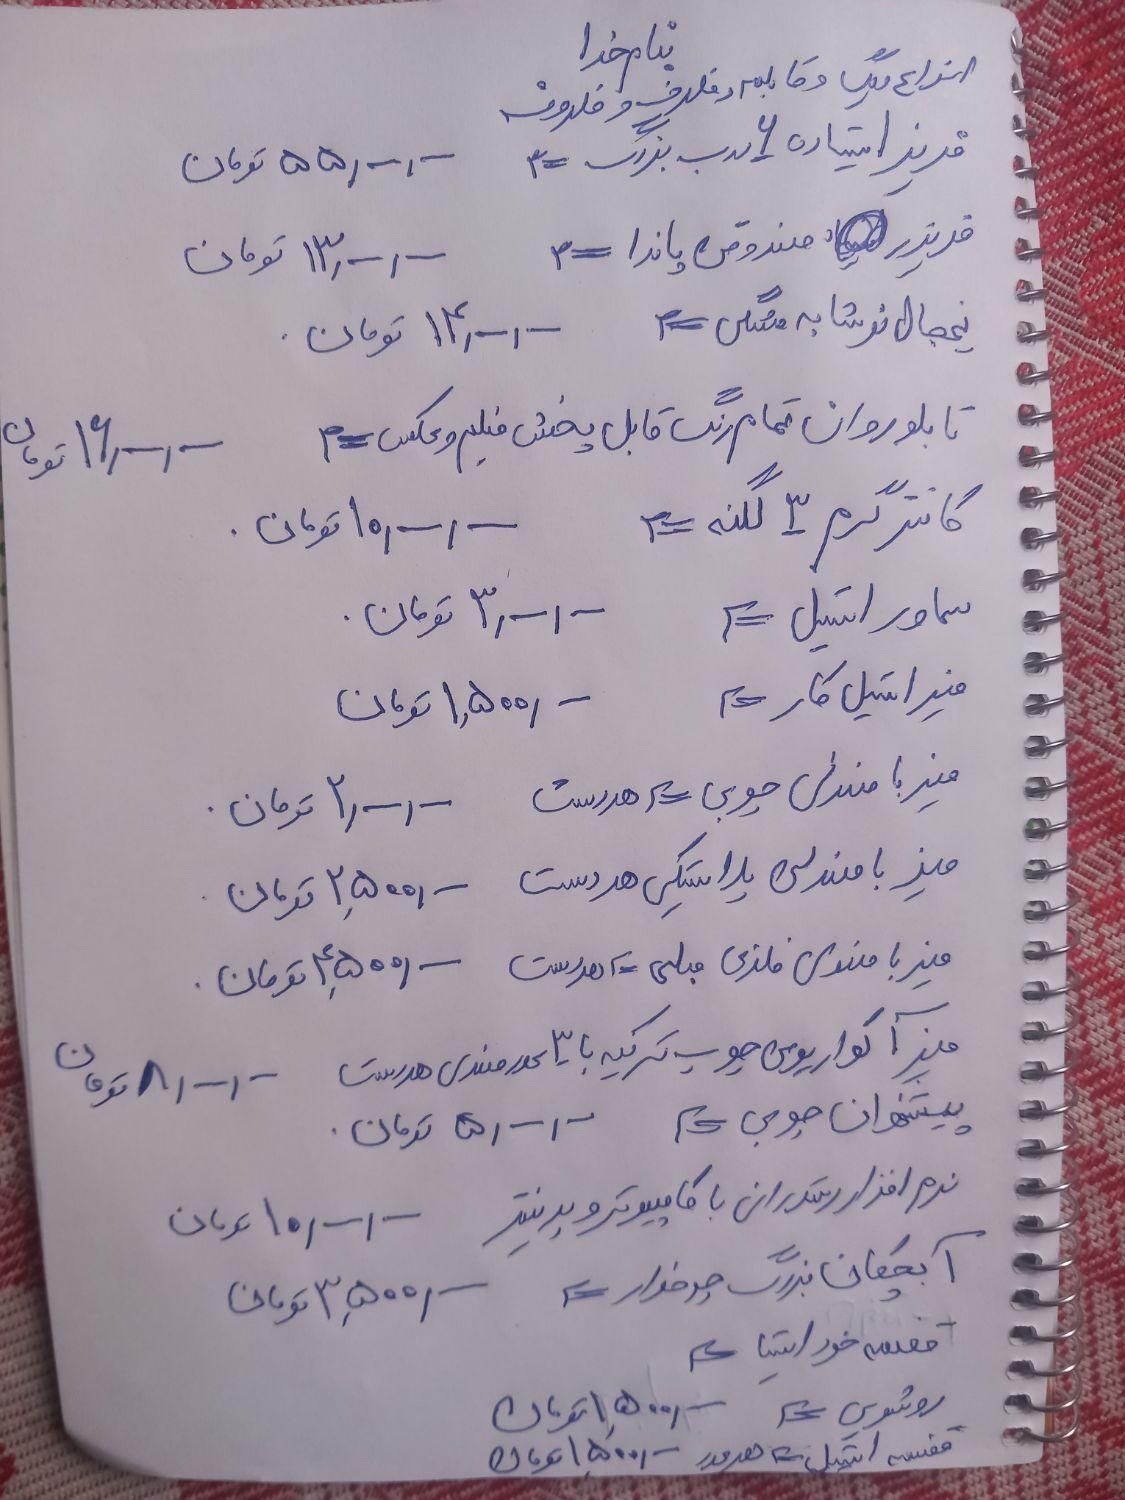 بنام خدا
انواع دیگ و قابلمه و ظروف
فریزر ایستاده ۶ درب بزرگ = ۵۵,۰۰۰,۰۰۰ تومان
فریزر صندوقی پاندا = ۱۳,۰۰۰,۰۰۰ تومان
یخچال نوشابه مشگی = ۱۴,۰۰۰,۰۰۰ تومان
تابلو روان تمام رنگ قابل پخش فیلم و عکس = ۱۶,۰۰۰,۰۰۰ تومان
کانتر گرم ۳ لگنه = ۱۰,۰۰۰,۰۰۰ تومان
سماور استیل = ۳,۰۰۰,۰۰۰ تومان
میز استیل کار = ۱,۵۰۰,۰۰۰ تومان
میز با صندلی چوبی = هر دست ۲,۰۰۰,۰۰۰ تومان
میز با صندلی پلاستیکی هر دست ۲,۵۰۰,۰۰۰ تومان
میز با صندلی فلزی مبلی = هر دست ۴,۵۰۰,۰۰۰ تومان
میز آکواریومی چوب ترکیه با ۳ عدد صندلی هر دست ۸,۰۰۰,۰۰۰ تومان
پیشخوان چوبی = ۵,۰۰۰,۰۰۰ تومان
نرم افزار رستورانی با کامپیوتر و پرینتر ۱۰,۰۰۰,۰۰۰ تومان
آبچکان بزرگ چرخدار = ۳,۵۰۰,۰۰۰ تومان
قفسه خور اشیا =
روشویی = ۱,۵۰۰,۰۰۰ تومان
قفسه استیل = هر عدد ۱,۵۰۰,۰۰۰ تومان